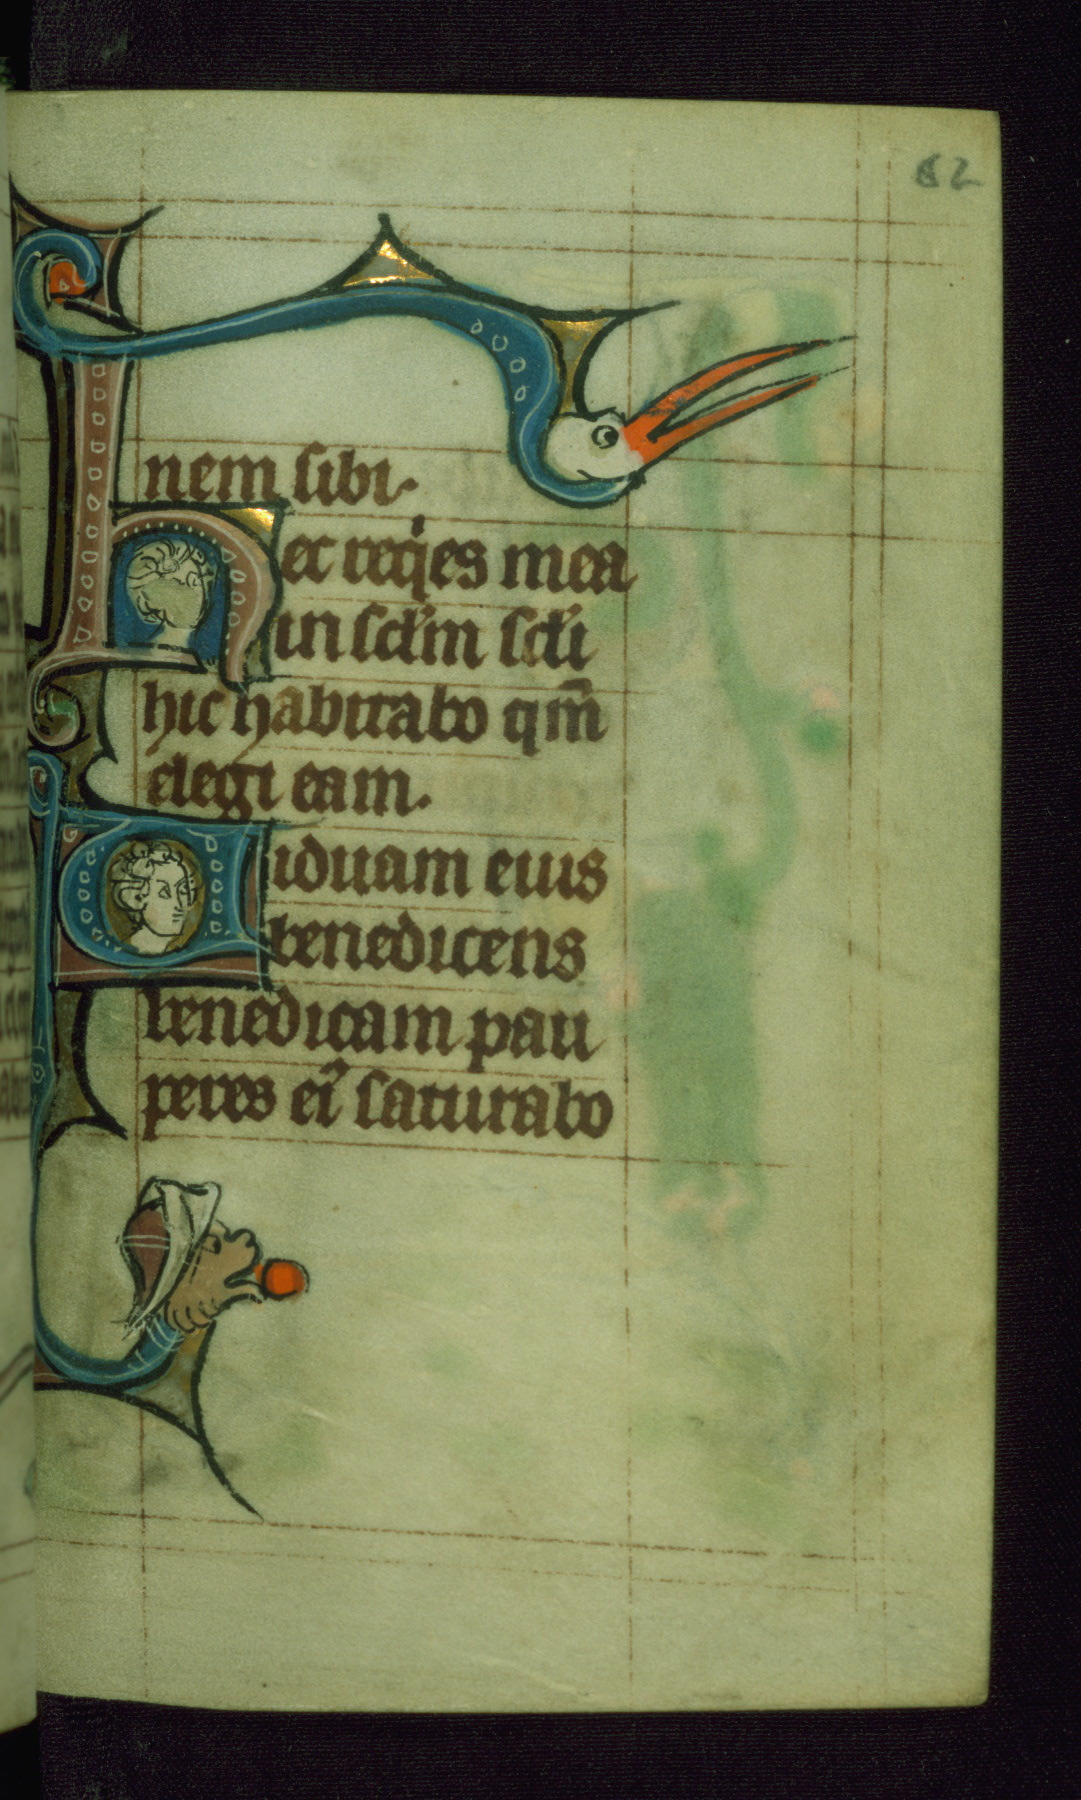 82
nem sibi.
Hec req̇es mea
in scl̃m scl̃i
hic habitabo qm̃
elegi eam.
Uiduam euis
benedicens
benedicam pau
peres ei᷒ saturabo